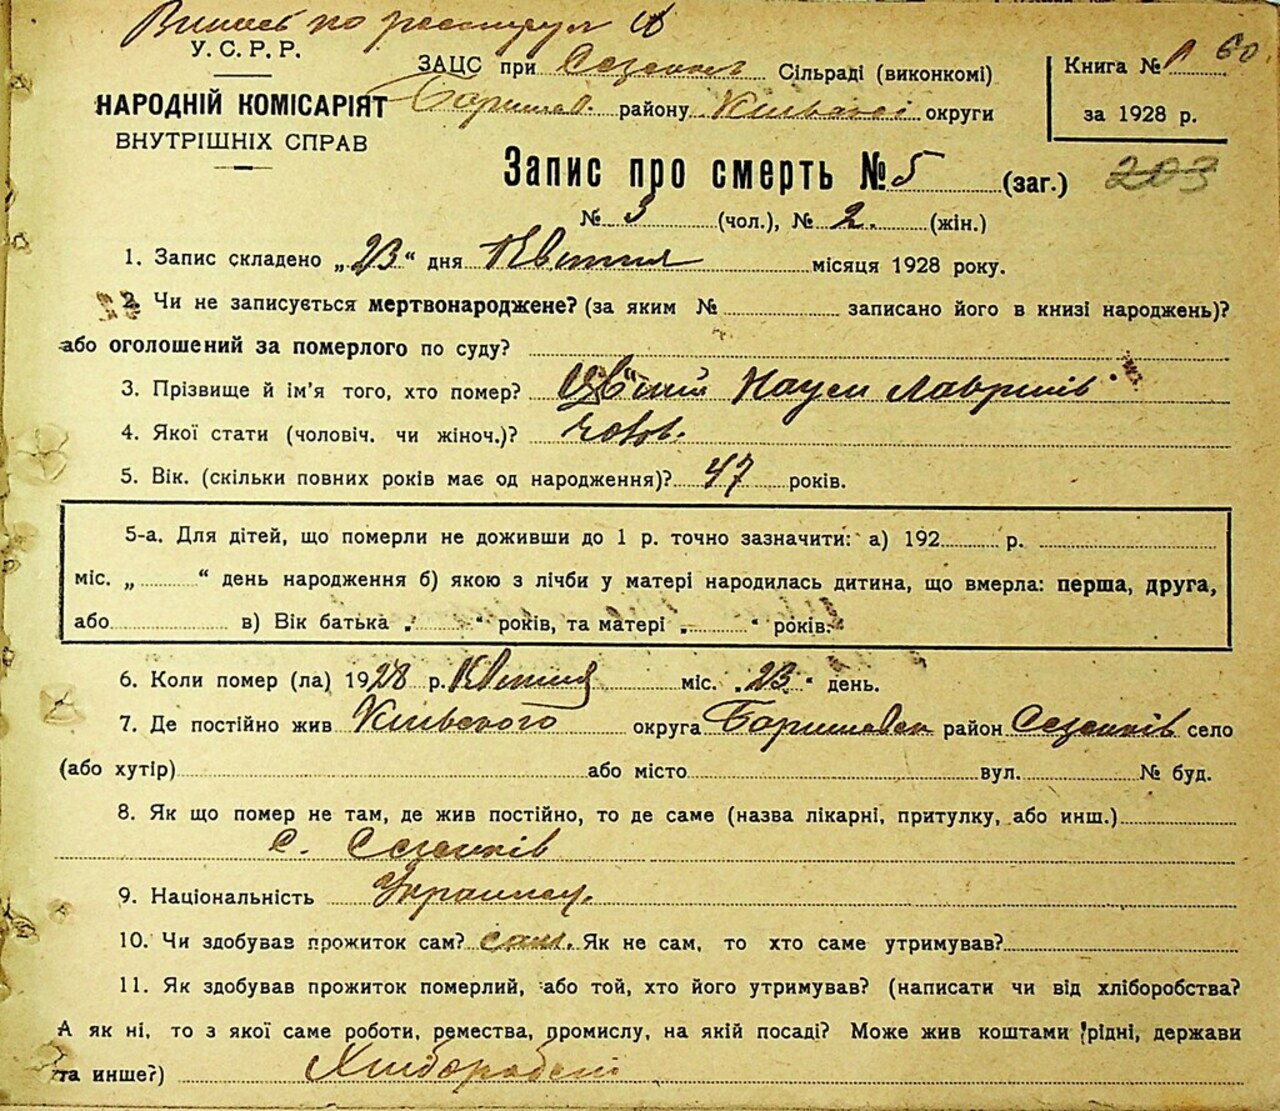 У. С. Р. Р.
НАРОДНІЙ КОМІСАРІЯТ
ВНУТРІШНІХ СПРАВ
ЗАЦС при Сезенків Сільраді (виконкомі)
Баришев. району Київської округи
Книга № 1 60
за 1928 р.
Запис про смерть № 5 (заг.) 203
№ 3 (чол.), № 2. (жін.)
1. Запис складено „23“ дня Квітня місяця 1928 року.
2. Чи не записується мертвонароджене? (за яким № записано його в книзі народжень)?
або оголошений за померлого по суду?
3. Прізвище й ім’я того, хто помер? Наум Лаврінів
4. Якої стати (чоловіч. чи жіноч.)? чолов.
5. Вік. (скільки повних років має од народження)? 47 років.
5-а. Для дітей, що померли не доживши до 1 р. точно зазначити: а) 192 р.
міс. „ “ день народження б) якою з лічби у матері народилась дитина, що вмерла: перша, друга,
або в) Вік батька „ “ років, та матері „ “ років.
6. Коли помер (ла) 1928 р. Квітня міс. „23“ день.
7. Де постійно жив Київського округа Баришевск район Сезенків село
(або хутір) або місто вул. № буд.
8. Як що помер не там, де жив постійно, то де саме (назва лікарні, притулку, або инш.)
с. Сезенків
9. Національність Украинец.
10. Чи здобував прожиток сам? сам. Як не сам, то хто саме утримував?
11. Як здобував прожиток померлий, або той, хто його утримував? (написати чи від хліборобства?
А як ні, то з якої саме роботи, ремества, промислу, на якій посаді? Може жив коштами рідні, держави
та инше?) Хліборобст